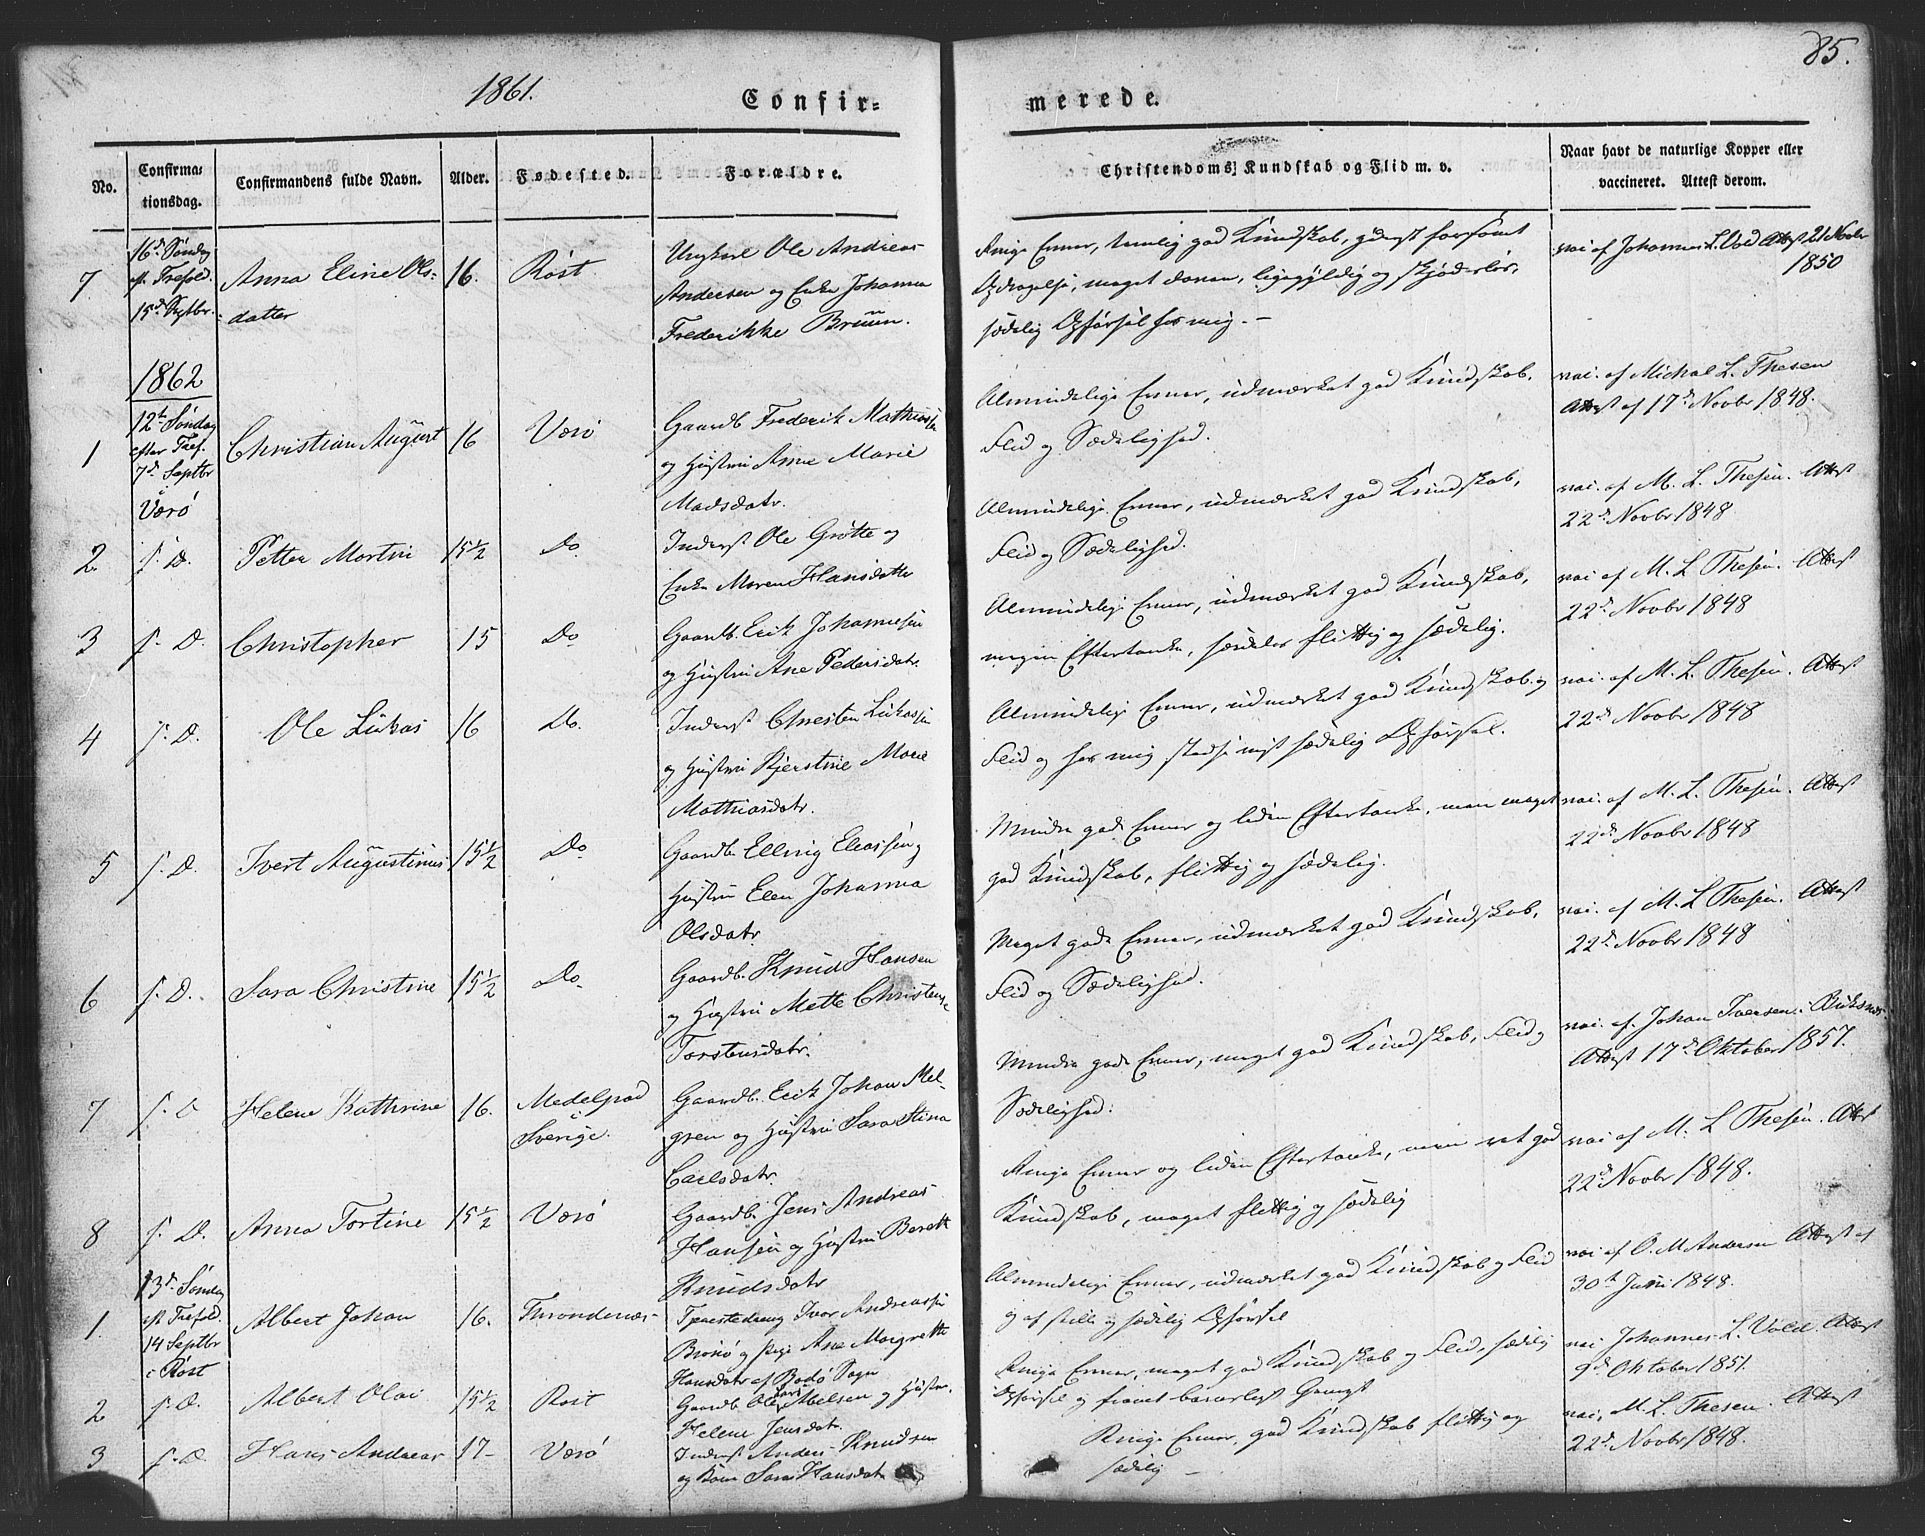 1861.
Confir-
merede.
85.
No.
Confirma-
tionsdag.
Confirmandens fulde Navn.
Alder.
Fødested.
Forældre.
Christendoms Kundskab og Flid m. v.
Naar havt de naturlige Kopper eller
vaccineret. Attest derom.
7.
16d Søndag
eft. Trefold.
15d Septbr.
Anna Eline Ols-
datter
16.
Røst
Ungkarl Ole Andreas
Andersen og Enke Johanna
Frederikke Bruun.
Ringe Evner, temlig god Kundskab, yderst forsømt
Opdragelse, meget doven, ligegyldig og skjødesløs,
sædelig Opførsel hos mig. -
vac. af Johannes L. Vold Attest 21 Novbr
1850
1862
1
12te Søndag
efter Tref.
7d Septbr
i
Værø
Christian August
16
Værø
Gaardb. Frederik Mathiassen
og Hustru Anne Marie
Madsdatr.
Almindelige Evner, udmærket god Kundskab,
Flid og Sædelighed.
vac. af Michal L. Thesen
Attest af 17d Novbr 1848.
2.
s. D.
Petter Martin
15½
Do
Inderst Ole Grøtte og
Enke Maren Hansdatter
Almindelige Evner, udmærket god Kundskab,
Flid og Sædelighed.
vac. af M. L. Thesen. Attest
22d Novbr 1848
3
s. D.
Christopher
15
Do
Gaardb. Erik Johannesen
og Hustru Ane Pedersdatr.
Almindelige Evner, udmærket god Kundskab,
megen Eftertanke, særdeles flittig og sædelig.
vac. af M. L. Thesen. Attest
22d Novbr 1848
4
s. D.
Ole Lukas
16
Do.
Inderst Chresten Lukassen
og Hustru Kjerstine Marie
Mathiasdatr.
Almindelige Evner, udmærket god Kundskab og
Flid og hos mig stedse vist sædelig Opførsel.
vac. af M. L. Thesen. Attest
22d Novbr 1848
5
s. D.
Ivert Augustinus
15½
Do
Gaardb. Elling Eleassen og
Hustru Elen Johanna
Olsdatr.
Mindre gode Evner og liden Eftertanke, men meget
god Kundskab, flittig og sædelig.
vac. af M. L. Thesen. Attest
22d Novbr 1848
6
s. D.
Sara Christine
15½
Do.
Gaardb. Knud Hansen
og Hustru Mette Christense
Torstensdatr.
Meget gode Evner, udmærket god Kundskab,
Flid og Sædelighed.
vac. af M. L. Thesen. Attest
22d Novbr 1848
7
s. D
Helene Kathrine
16.
Medelpad
Sverige.
Gaardb. Erik Johan Mel-
gren og Hustru Sara Stina
Carlsdatr.
Mindre gode Evner, meget god Kundskab, Flid og
Sædelighed.
vac. af. Johan Iversen
Attest 17d Oktober 1857.
8
s. D.
Anna Tortine
15½
Værø
Gaardb. Jens Andreas
Hansen og Hustru Berett
Knudsdatr
Ringe Evner og liden Eftertanke, men ret god
Kundskab, meget flittig og sædelig
vac af M. L Thesen. Attest
22d Novbr 1848.
1.
13d Søndag
eft Trefold.
14 Septbr
i Røst
Albert Johan
16.
Throndenæs
Tjenestedreng Ivar Andreassen
Brønø og Pige Ane Margrette
Hansdatr af Bodø Sogn
Almindelige Evner, udmærket god Kundskab og Flid
og af stille og sædelig Opførsel
vac af O. M Andersen Attest af
30te Juni 1848.
2
s. D.
Albert Olai
15½
Røst
Gaardb Ole Lars Nielsen og Hustru
Helene Jensdatr.
Ringe Evner, meget god Kundskab og Flid, sædelig
Opførsel og
vac Johannes L. Vold. Attest
9d Oktober 1851.
3
s. D.
Hans Andreas
17-
Værø
Inderst Anders Knudsen
og Kone Sara Hansdatr
Ringe Evner, god Kundskab flittig og
sædelig -
vac. M. L. Thesen. Attest
22d Novbr 1848.